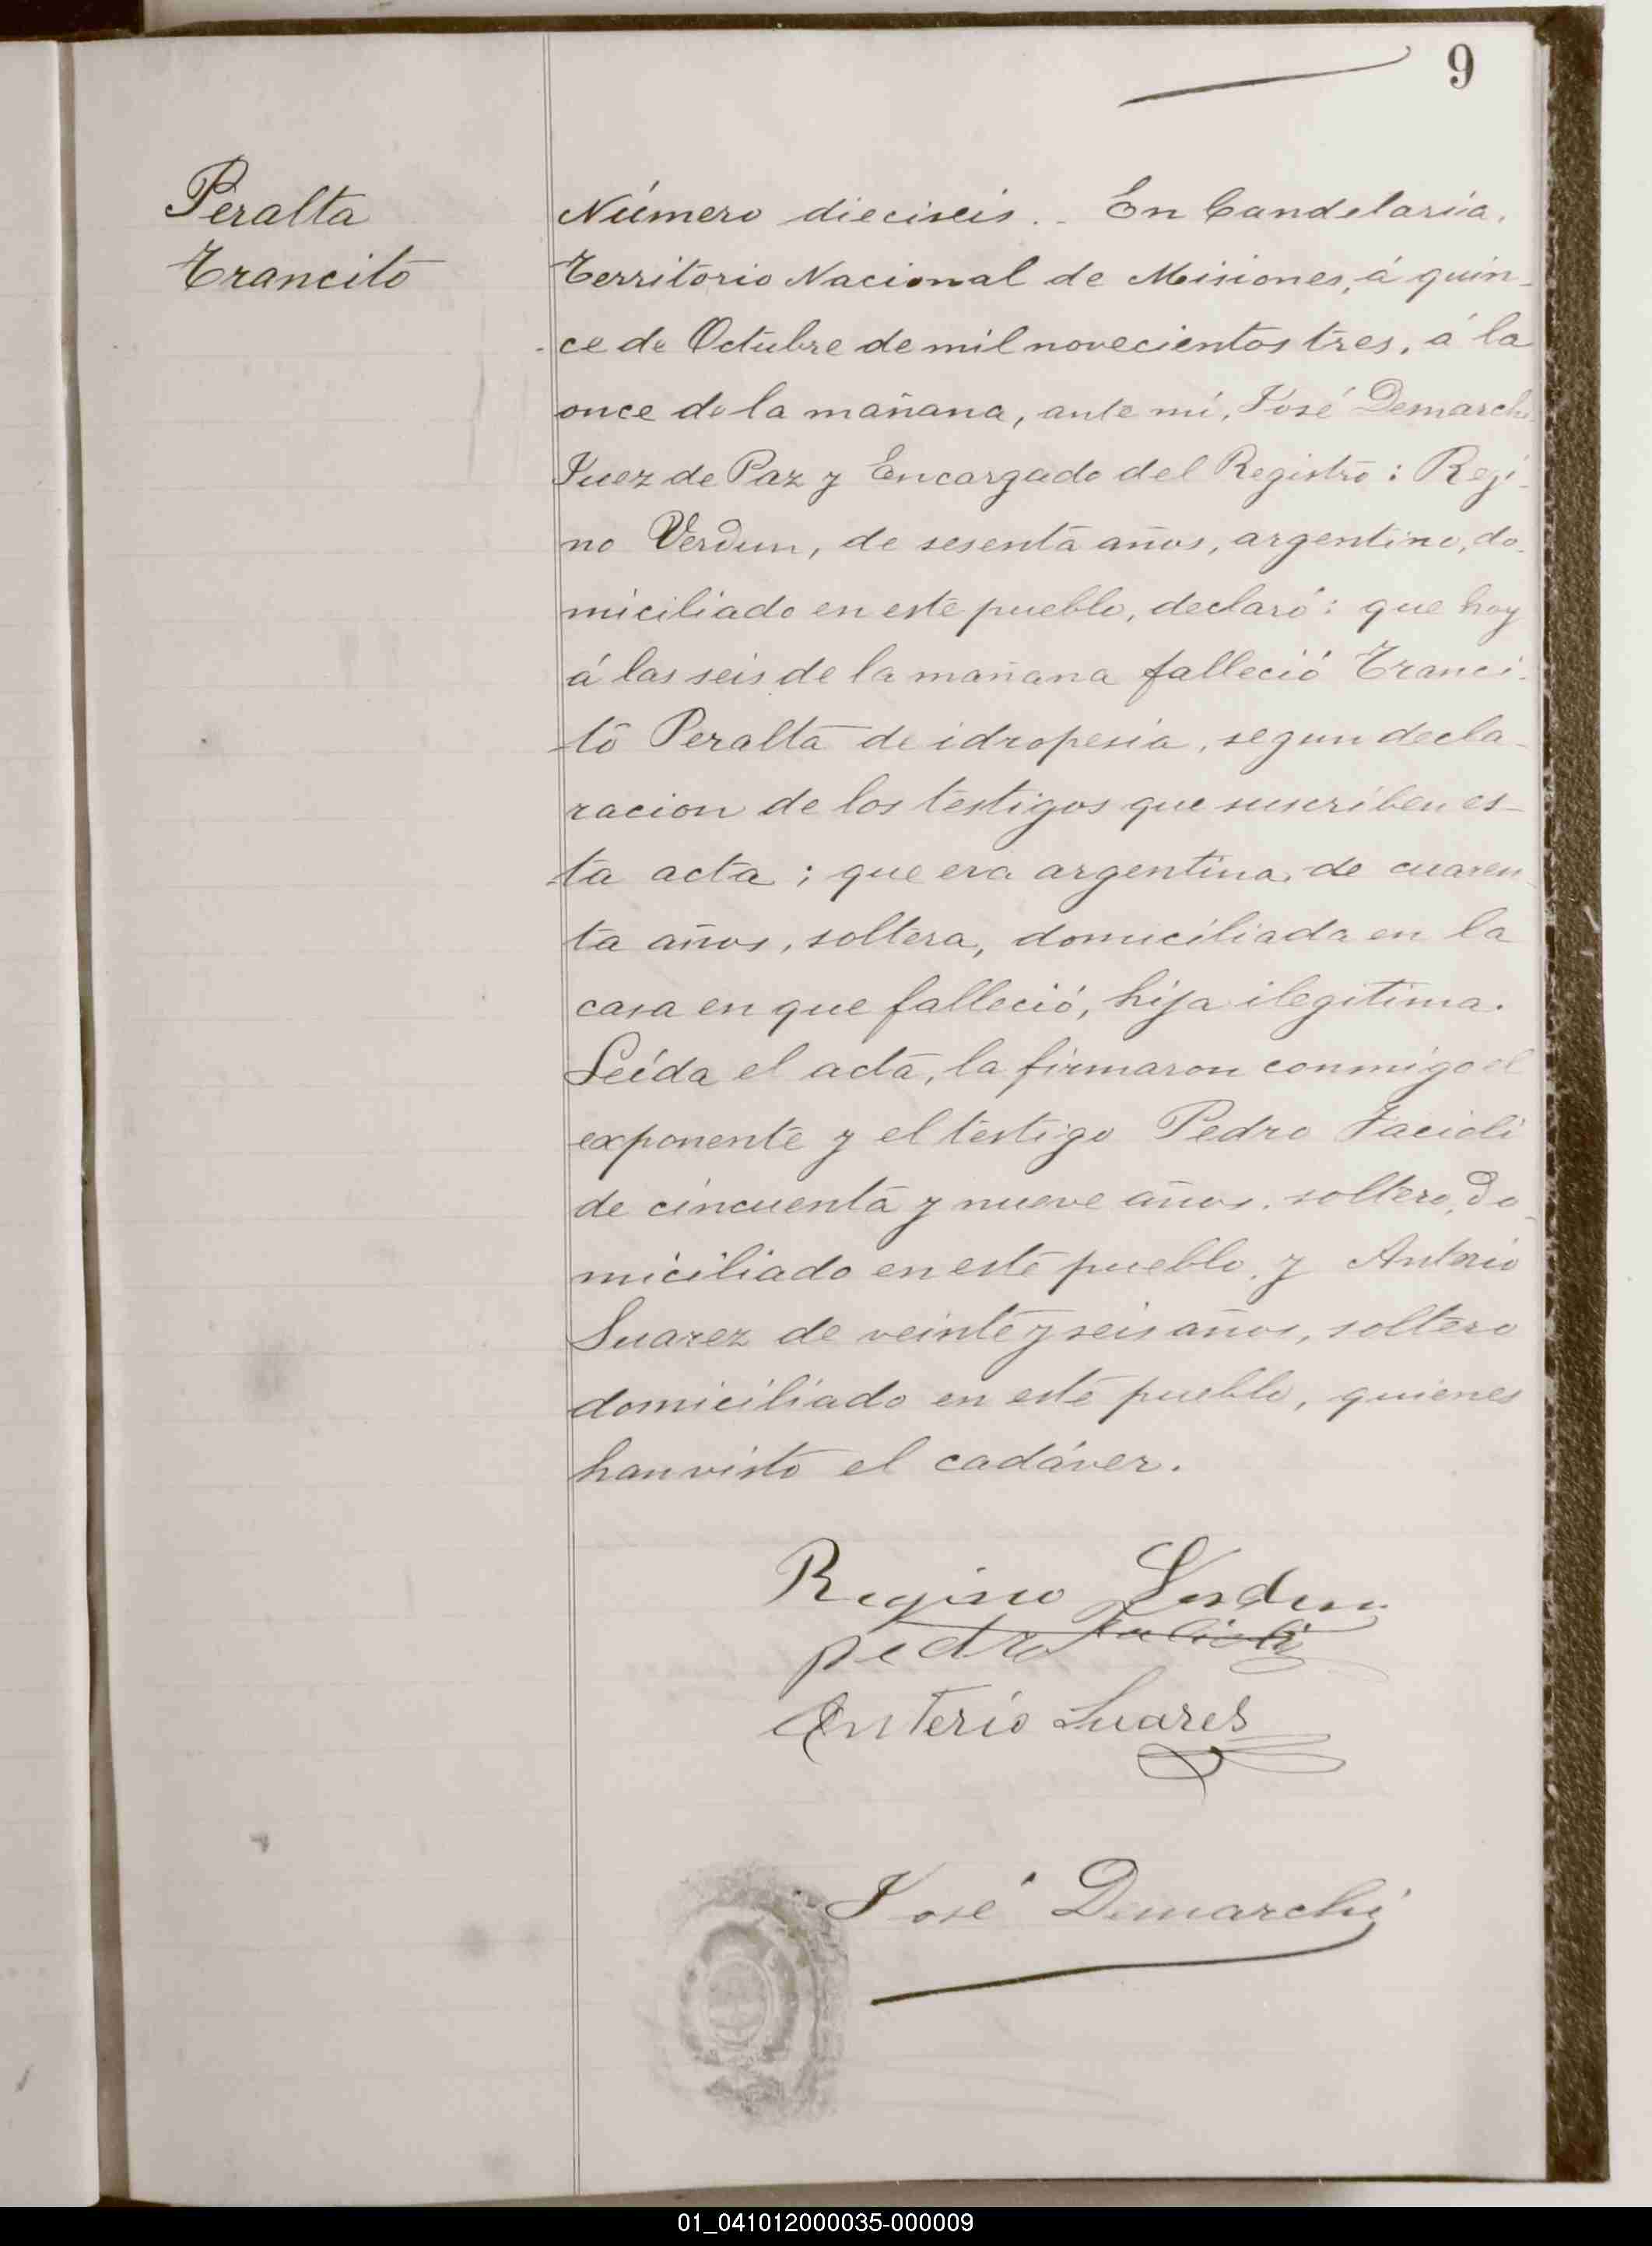 9
Peralta
Trancito
Número dieciseis.. En Candelaria,
Territorio Nacional de Misiones, á quin-
ce de Octubre de mil novecientos tres, á la
once de la mañana, ante mi, José Demarchi
Juez de Paz y Encargado del Registro: Reji-
no Verdun, de sesenta años, argentino, do-
miciliado en este pueblo, declaró: que hoy
á las seis de la mañana falleció Tranci-
to Peralta de idropesia, segun decla-
racion de los testigos que suscriben es-
ta acta; que era argentina, de cuaren-
ta años, soltera, domiciliada en la
casa en que falleció, hija ilegitima.
Leída el acta, la firmaron conmigo el
exponente y el testigo Pedro Facioli
de cincuenta y nueve años, soltero, do-
miciliado en este pueblo, y Anterio
Suarez de veinte y seis años, soltero
domiciliado en este pueblo, quienes
han visto el cadáver.
Regino Verdun
pedro Facioli
Anterio Suares
José Demarchi
01_041012000035-000009